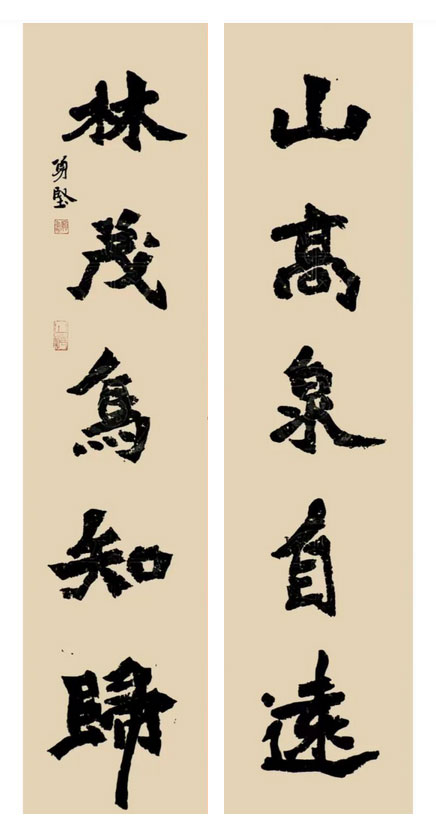 山高泉自遠
林茂鳥知歸
勇堅